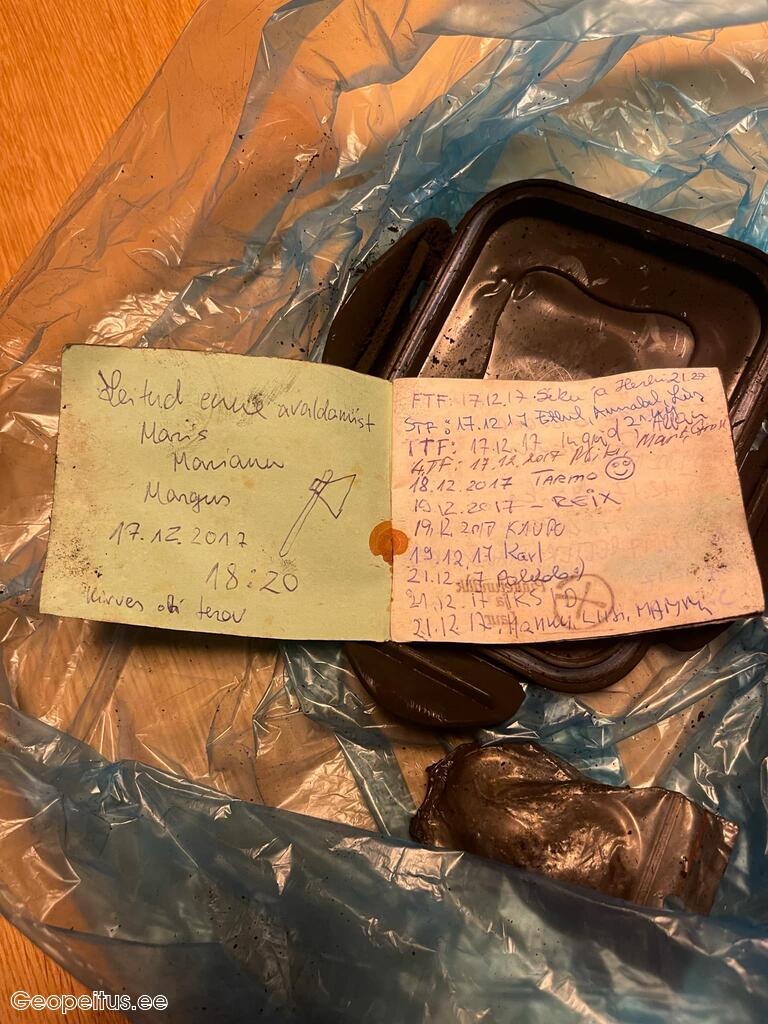 Leitud enne avaldamist
Maris
Mariann
Margus
17.12.2017
18:20
Kirves oli terav
FTF: 17.12.17 Siku ja 21.27
STF: 17.12.17 Ethel, Annabel,
TTF: 17.12.17 Ingrid Allan
4TF: 17.12.2017 Marit
18.12.2017 TARMO
19.12.2017 - REIX
19.12.2017 KAUPO
19.12.17 Karl
21.12.17
21.12.17 KS
21.12.17. Hannu, Liisi,
Geopeitus.ee